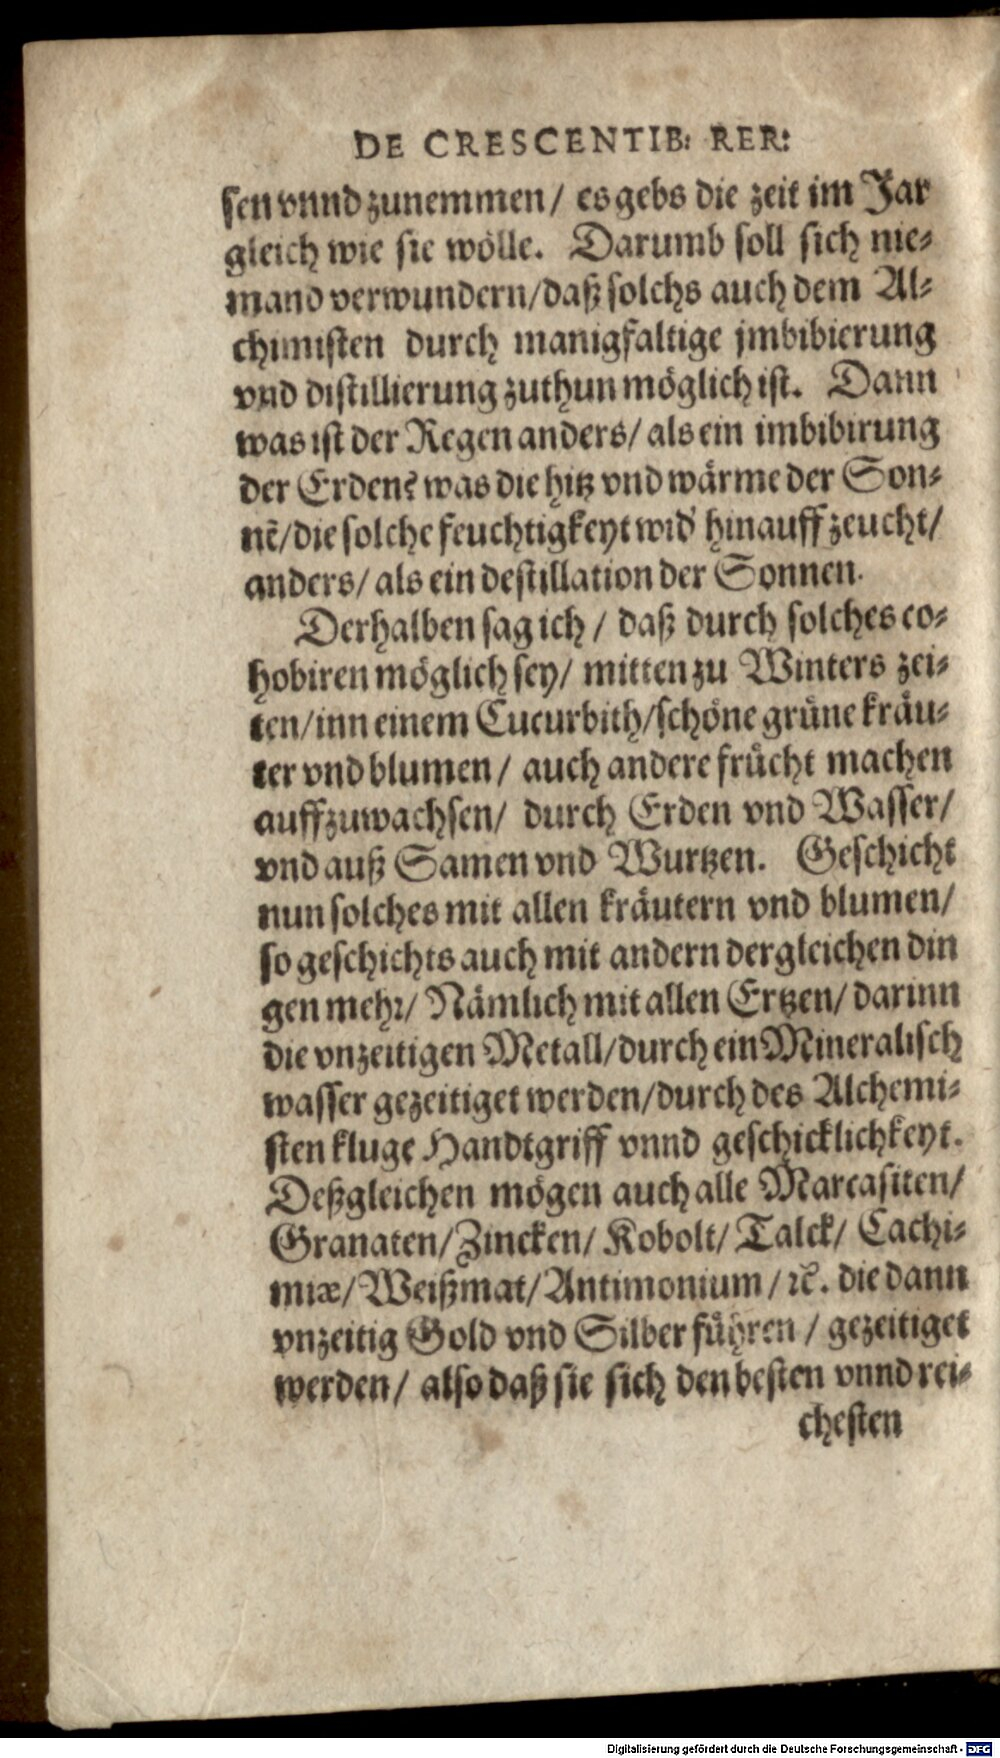 DE CRESCENTIB: RER:
sen vnnd zunemmen / es gebs die zeit im Jar
gleich wie sie wölle. Darumb soll sich nie⸗
mand verwundern/daß solchs auch dem Al⸗
chimisten durch manigfaltige jmbibierung
vnd distillierung zuthun möglich ist. Dann
was ist der Regen anders/ als ein imbibirung
der Erden? was die hitz vnd wärme der Son⸗
nẽ/die solche feuchtigkeyt wid' hinauff zeucht/
anders/ als ein destillation der Sonnen.
Derhalben sag ich / daß durch solches co⸗
hobiren möglich sey/ mitten zu Winters zei⸗
ten/inn einem Cucurbith/schöne grüne kräu⸗
ter vnd blumen / auch andere frücht machen
auffzuwachsen/ durch Erden vnd Wasser/
vnd auß Samen vnd Wurtzen. Geschicht
nun solches mit allen kräutern vnd blumen/
so geschichts auch mit andern dergleichen din
gen mehr/ Nämlich mit allen Ertzen/ darinn
die vnzeitigen Metall/durch ein Mineralisch
wasser gezeitiget werden/durch des Alchemi⸗
sten kluge Handtgriff vnnd geschicklichkeyt.
Deßgleichen mögen auch alle Marcasiten/
Granaten/Zincken/ Kobolt/ Talck/ Cachi⸗
miæ/Weißmat/Antimonium / ꝛc̃. die dann
vnzeitig Gold vnd Silber führen / gezeitiget
werden/ also daß sie sich den besten vnnd rei⸗
chesten
Digitalisierung gefördert durch die Deutsche Forschungsgemeinschaft - DFG